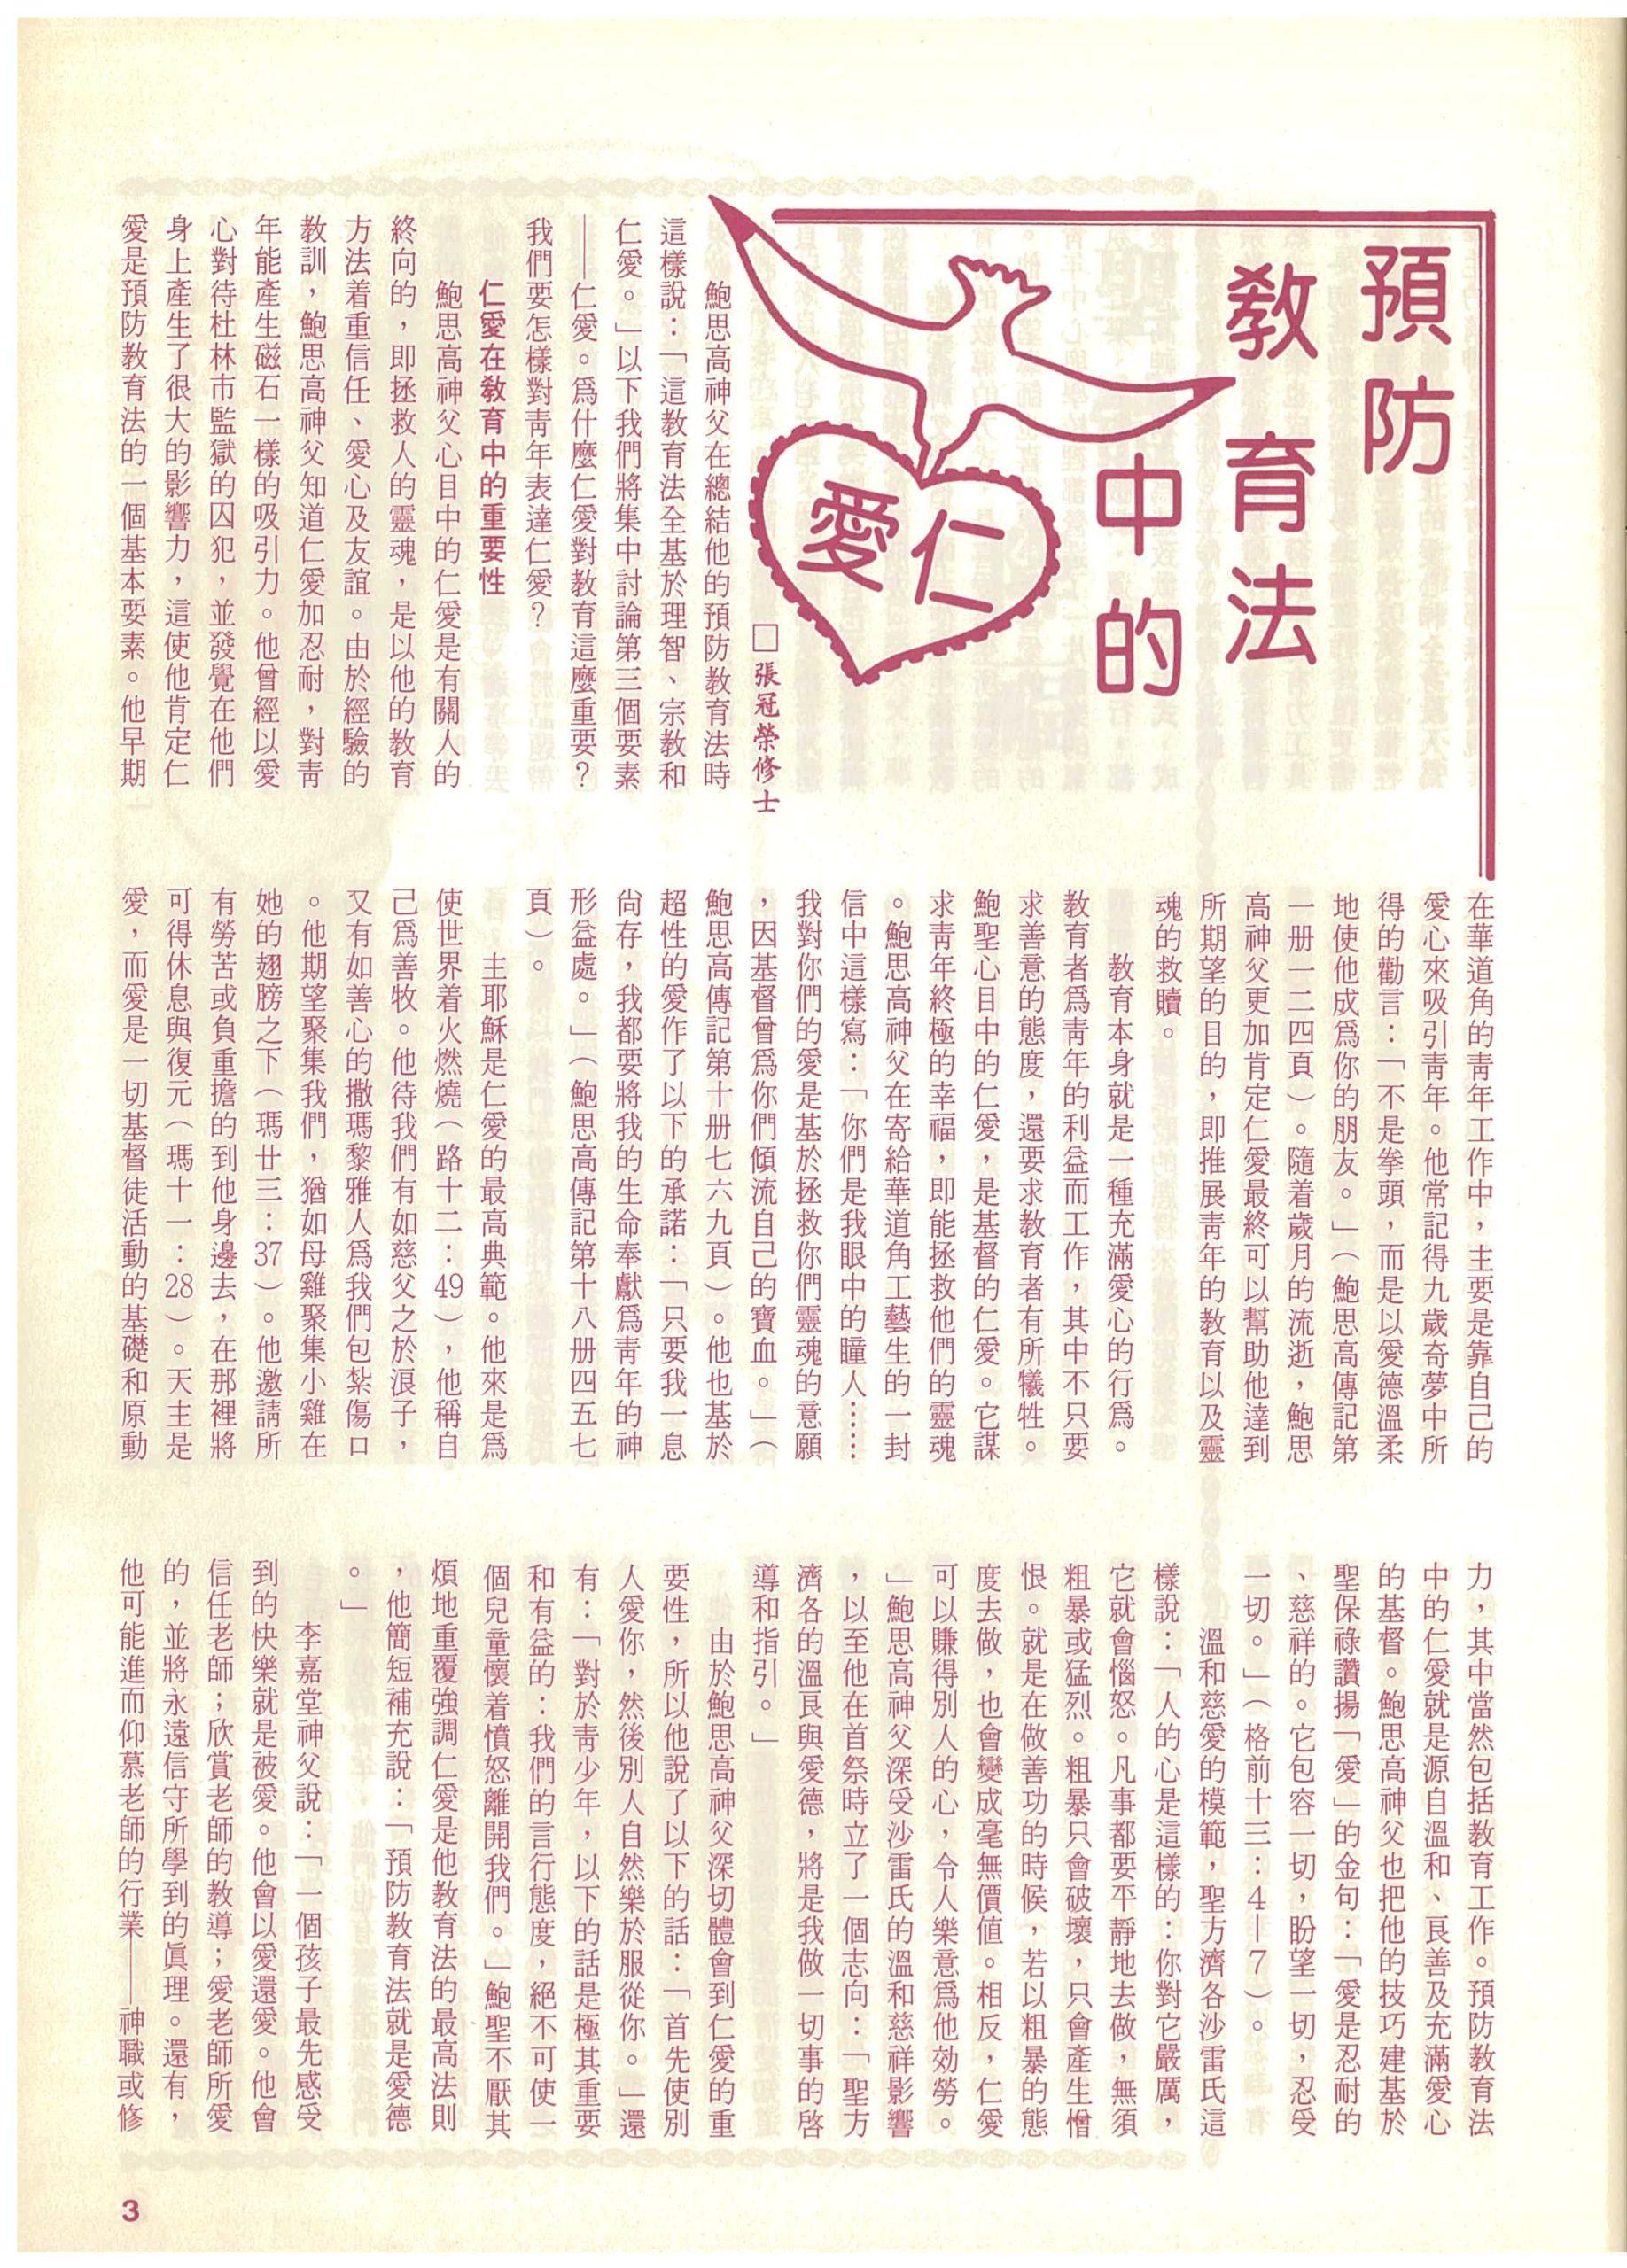 預防
教育法
中的
仁愛
□張冠榮修士
鮑思高神父在總結他的預防教育法時
這樣說：「這教育法全基於理智、宗教和
仁愛。」以下我們將集中討論第三個要素
——仁愛。爲什麼仁愛對教育這麼重要？
我們要怎樣對靑年表達仁愛？
仁愛在敎育中的重要性
鮑思高神父心目中的仁愛是有關人的
終向的，即拯救人的靈魂，是以他的教育
方法着重信任、愛心及友誼。由於經驗的
教訓，鮑思高神父知道仁愛加忍耐，對靑
年能產生磁石一樣的吸引力。他曾經以愛
心對待杜林市監獄的囚犯，並發覺在他們
身上產生了很大的影響力，這使他肯定仁
愛是預防教育法的一個基本要素。他早期
在華道角的靑年工作中，主要是靠自己的
愛心來吸引靑年。他常記得九歲奇夢中所
得的勸言：「不是拳頭，而是以愛德溫柔
地使他成爲你的朋友。」（鮑思高傳記第
一册一二四頁）。隨着歲月的流逝，鮑思
高神父更加肯定仁愛最終可以幫助他達到
所期望的目的，即推展靑年的教育以及靈
魂的救贖。
教育本身就是一種充滿愛心的行爲。
教育者爲靑年的利益而工作，其中不只要
求善意的態度，還要求教育者有所犧牲。
鮑聖心目中的仁愛，是基督的仁愛。它謀
求靑年終極的幸福，即能拯救他們的靈魂
。鮑思高神父在寄給華道角工藝生的一封
信中這樣寫：「你們是我眼中的瞳人……
我對你們的愛是基於拯救你們靈魂的意願
，因基督曾爲你們傾流自己的寶血。」（
鮑思高傳記第十册七六九頁）。他也基於
超性的愛作了以下的承諾：「只要我一息
尙存，我都要將我的生命奉獻爲靑年的神
形益處。」（鮑思高傳記第十八册四五七
頁）。
主耶穌是仁愛的最高典範。他來是爲
使世界着火燃燒（路十二：49），他稱自
己爲善牧。他待我們有如慈父之於浪子，
又有如善心的撒瑪黎雅人爲我們包紮傷口
。他期望聚集我們，猶如母雞聚集小雞在
她的翅膀之下（瑪廿三：37）。他邀請所
有勞苦或負重擔的到他身邊去，在那裡將
可得休息與復元（瑪十一：28）。天主是
愛，而愛是一切基督徒活動的基礎和原動
力，其中當然包括教育工作。預防教育法
中的仁愛就是源自溫和、良善及充滿愛心
的基督。鮑思高神父也把他的技巧建基於
聖保祿讚揚「愛」的金句：「愛是忍耐的
、慈祥的。它包容一切，盼望一切，忍受
一切。」（格前十三：4—7）。
溫和慈愛的模範，聖方濟各沙雷氏這
樣說：「人的心是這樣的：你對它嚴厲，
它就會惱怒。凡事都要平靜地去做，無須
粗暴或猛烈。粗暴只會破壞，只會產生憎
恨。就是在做善功的時候，若以粗暴的態
度去做，也會變成毫無價值。相反，仁愛
可以賺得別人的心，令人樂意爲他効勞。
」鮑思高神父深受沙雷氏的溫和慈祥影響
，以至他在首祭時立了一個志向：「聖方
濟各的溫良與愛德，將是我做一切事的啓
導和指引。」
由於鮑思高神父深切體會到仁愛的重
要性，所以他說了以下的話：「首先使別
人愛你，然後別人自然樂於服從你。」還
有：「對於靑少年，以下的話是極其重要
和有益的：我們的言行態度，絕不可使一
個兒童懷着憤怒離開我們。」鮑聖不厭其
煩地重覆強調仁愛是他教育法的最高法則
，他簡短補充說：「預防教育法就是愛德
。」
李嘉堂神父說：「一個孩子最先感受
到的快樂就是被愛。他會以愛還愛。他會
信任老師；欣賞老師的教導；愛老師所愛
的，並將永遠信守所學到的眞理。還有，
他可能進而仰慕老師的行業——神職或修
3